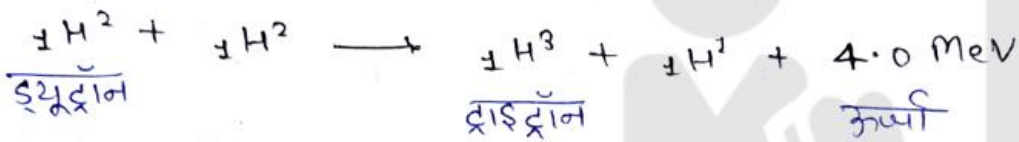 ₁H² + ₁H² ⟶ ₁H³ + ₁H¹ + 4.0 MeV
ड्यूट्रॉन ट्राइट्रॉन ऊर्जा